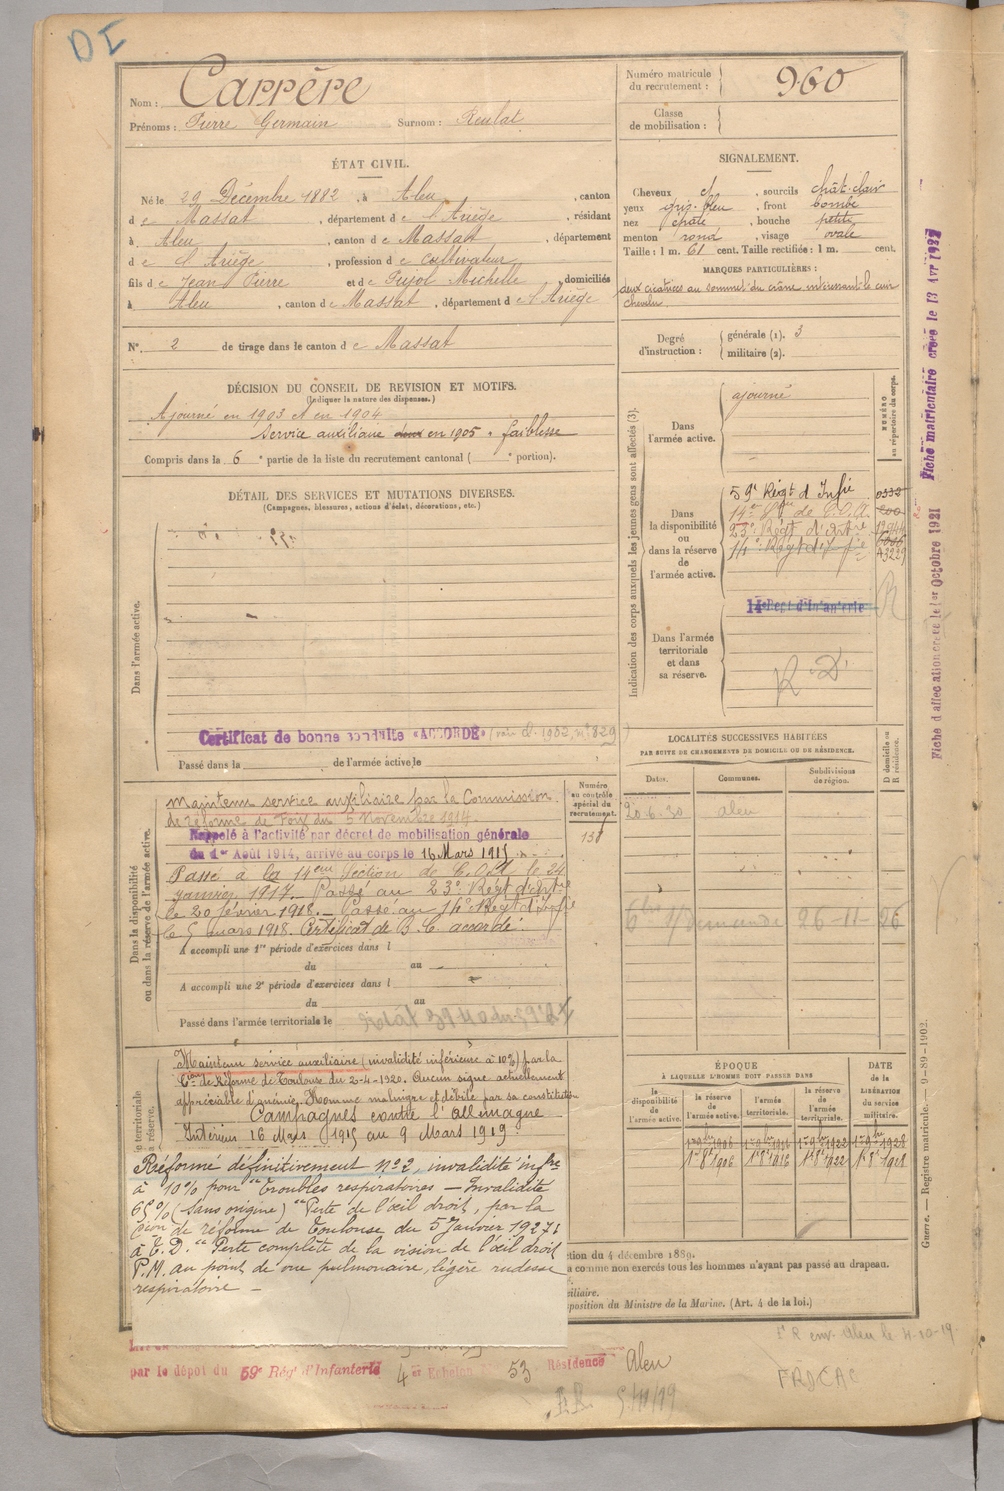 DI
Nom : Carrère
Prénoms : Pierre Germain Surnom : Reulat
Numéro matricule du recrutement : 960
Classe de mobilisation :
ÉTAT CIVIL.
Né le 29 Décembre 1882, à Aleu, canton
de Massat, département de l'Ariège, résidant
à Aleu, canton de Massat, département
de l'Ariège, profession de cultivateur
fils de Jean Pierre et de Pujol Michelle, domiciliés
à Aleu, canton de Massat, département de l'Ariège
N° 2 de tirage dans le canton de Massat
SIGNALEMENT.
Cheveux et, sourcils chât-clair
yeux gris-bleu, front bombé
nez épaté, bouche petite
menton rond, visage ovale
Taille : 1 m. 61 cent. Taille rectifiée : 1 m. cent.
MARQUES PARTICULIÈRES :
deux cicatrices au sommet du crâne intéressant le cuir
chevelu
Degré d'instruction : générale (1). 3
militaire (2).
DÉCISION DU CONSEIL DE REVISION ET MOTIFS.
(Indiquer la nature des dispenses.)
Ajourné en 1903 et en 1904
Service auxiliaire en 1905 " faiblesse
Compris dans la 6e partie de la liste du recrutement cantonal ( e portion).
DÉTAIL DES SERVICES ET MUTATIONS DIVERSES.
(Campagnes, blessures, actions d'éclat, décorations, etc.)
Dans l'armée active.
Certificat de bonne conduite «ACCORDÉ» (voir cl. 1902 n° 829)
Passé dans la de l'armée active le
Indication des corps auxquels les jeunes gens sont affectés (3).
NUMÉRO au répertoire du corps.
Dans l'armée active.
ajourné
Dans la disponibilité ou dans la réserve de l'armée active.
59e Régt d'Infie
14e Son de C.O.A.
23e Régt d'Artie
14e Régt d'Infie
14e Régt d'Infanterie
Dans l'armée territoriale et dans sa réserve.
R D
Dans la disponibilité ou dans la réserve de l'armée active.
Numéro au contrôle spécial du recrutement.
Maintenu service auxiliaire par la Commission
de réforme de Foix du 5 Novembre 1914.
Rappelé à l'activité par décret de mobilisation générale
du 1er Août 1914, arrivé au corps le 16 Mars 1915
Passé à la 14ème Section de C.O.A. le 24
janvier 1917. Passé au 23e Régt d'Artie
le 20 février 1918. Passé au 14e Régt d'Infie
le 5 mars 1918. Certificat de B. C. accordé.
A accompli une 1re période d'exercices dans l
du au
A accompli une 2e période d'exercices dans l
du au
Passé dans l'armée territoriale le
LOCALITÉS SUCCESSIVES HABITÉES
PAR SUITE DE CHANGEMENTS DE DOMICILE OU DE RÉSIDENCE.
Dates. Communes. Subdivisions de région. D domicile ou R résidence.
20-6-30 Aleu
26-11-26
Maintenu service auxiliaire (invalidité inférieure à 10%) par la
Cion de Réforme de Toulouse du 2-4-1920. Aucun signe actuellement
appréciable d'anémie. Homme malingre et débile par sa constitution
Campagnes contre l'allemagne
Intérieur 16 Mars 1915 au 9 Mars 1919.
Réformé définitivement n° 2, invalidité infre
à 10% pour "troubles respiratoires — Invalidité
65% (sans origine) "Perte de l'œil droit, par la
Cion de réforme de Toulouse du 5 Janvier 1927
à E.D. "Perte complète de la vision de l'œil droit
P.M. au point de vue pulmonaire, légère rudesse
respiratoire —
ÉPOQUE
À LAQUELLE L'HOMME DOIT PASSER DANS
la disponibilité de l'armée active. la réserve de l'armée active. l'armée territoriale. la réserve de l'armée territoriale.
DATE de la LIBÉRATION du service militaire.
1er 9bre 1906 1er 9bre 1916 1er 9bre 1922 1er 9bre 1928
1er 8bre 1906 1er 8bre 1916 1er 8bre 1922 1er 8bre 1928
ction du 4 décembre 1889.
a comme non exercés tous les hommes n'ayant pas passé au drapeau.
xiliaire.
sposition du Ministre de la Marine. (Art. 4 de la loi.)
par le dépôt du 59e Régt d'Infanterie 4er Echelon 53 Résidence Aleu
FRICAC
Fiche d'affectation créée le 1er Octobre 1921
Fiche matriculaire créée le 13 Avr 1927
Guerre. — Registre matricule. — 9-89-1902.